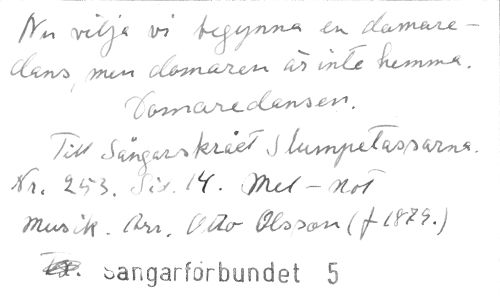 Nu vilja vi begynna en domare-
dans, men domaren är inte hemma.
Domaredansen.
Till Sångarskrået Slumpetassarna.
Nr. 253. Sid. 14. Mel-not
Musik. Arr. Otto Olsson (f 1879.)
Sångarförbundet 5